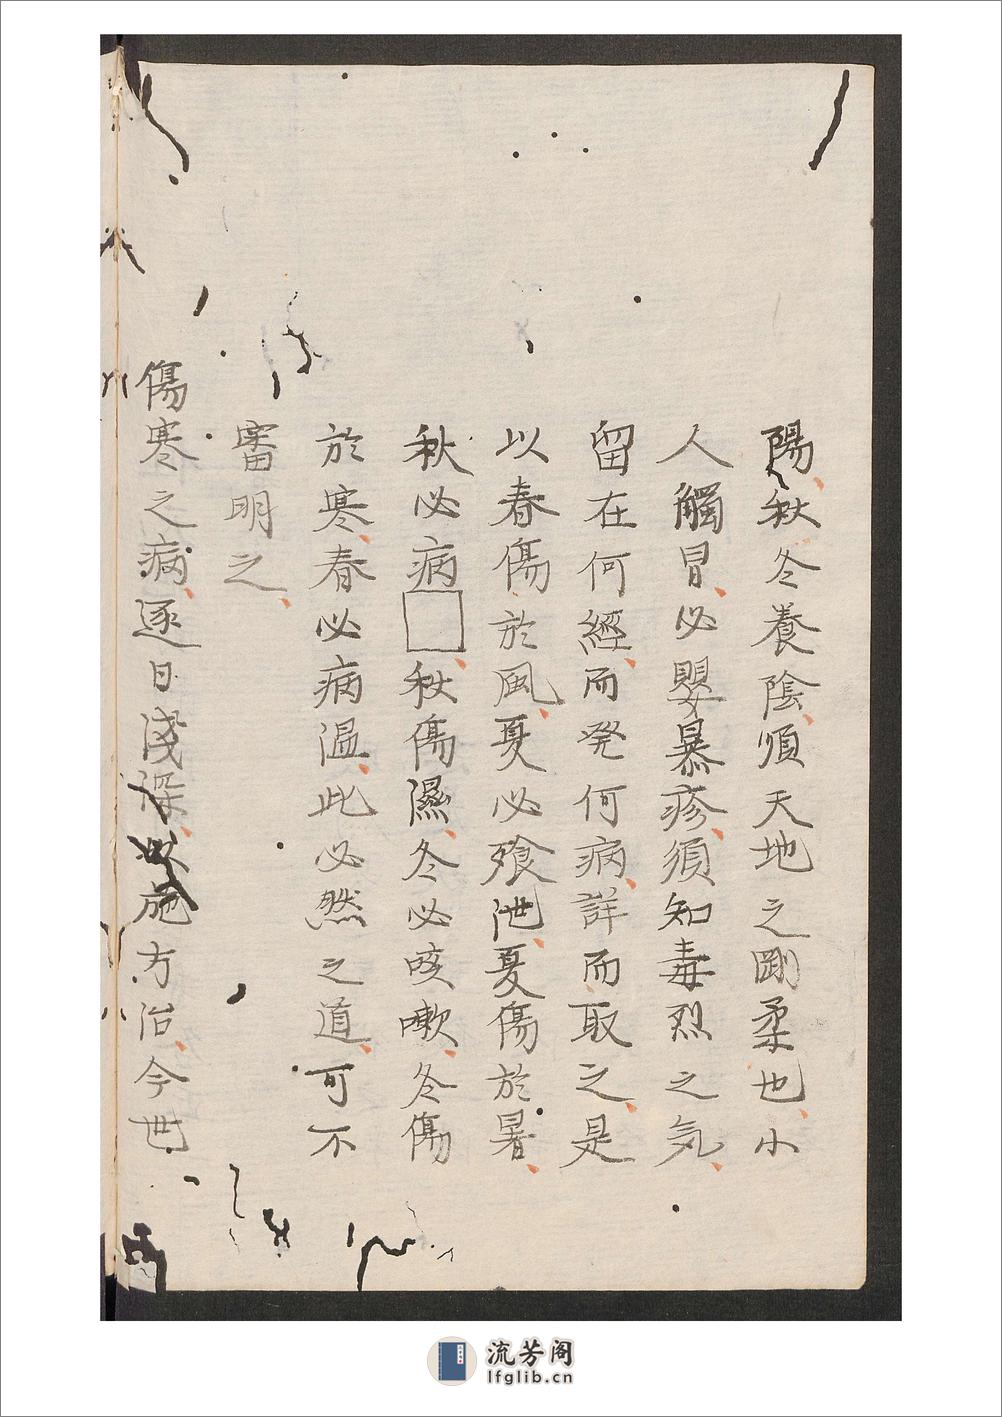 陽秋冬養陰順天地之剛柔也小
人觸冒必嬰暴疹須知毒烈之気
留在何經而発何病詳而取之是
以春傷於風夏必飱泄夏傷於暑
秋必病□秋傷濕冬必咳嗽冬傷
於寒春必病温此必然之道可不
審明之
傷寒之病逐日浅深以施方治今世
流芳阁
lfglib.cn